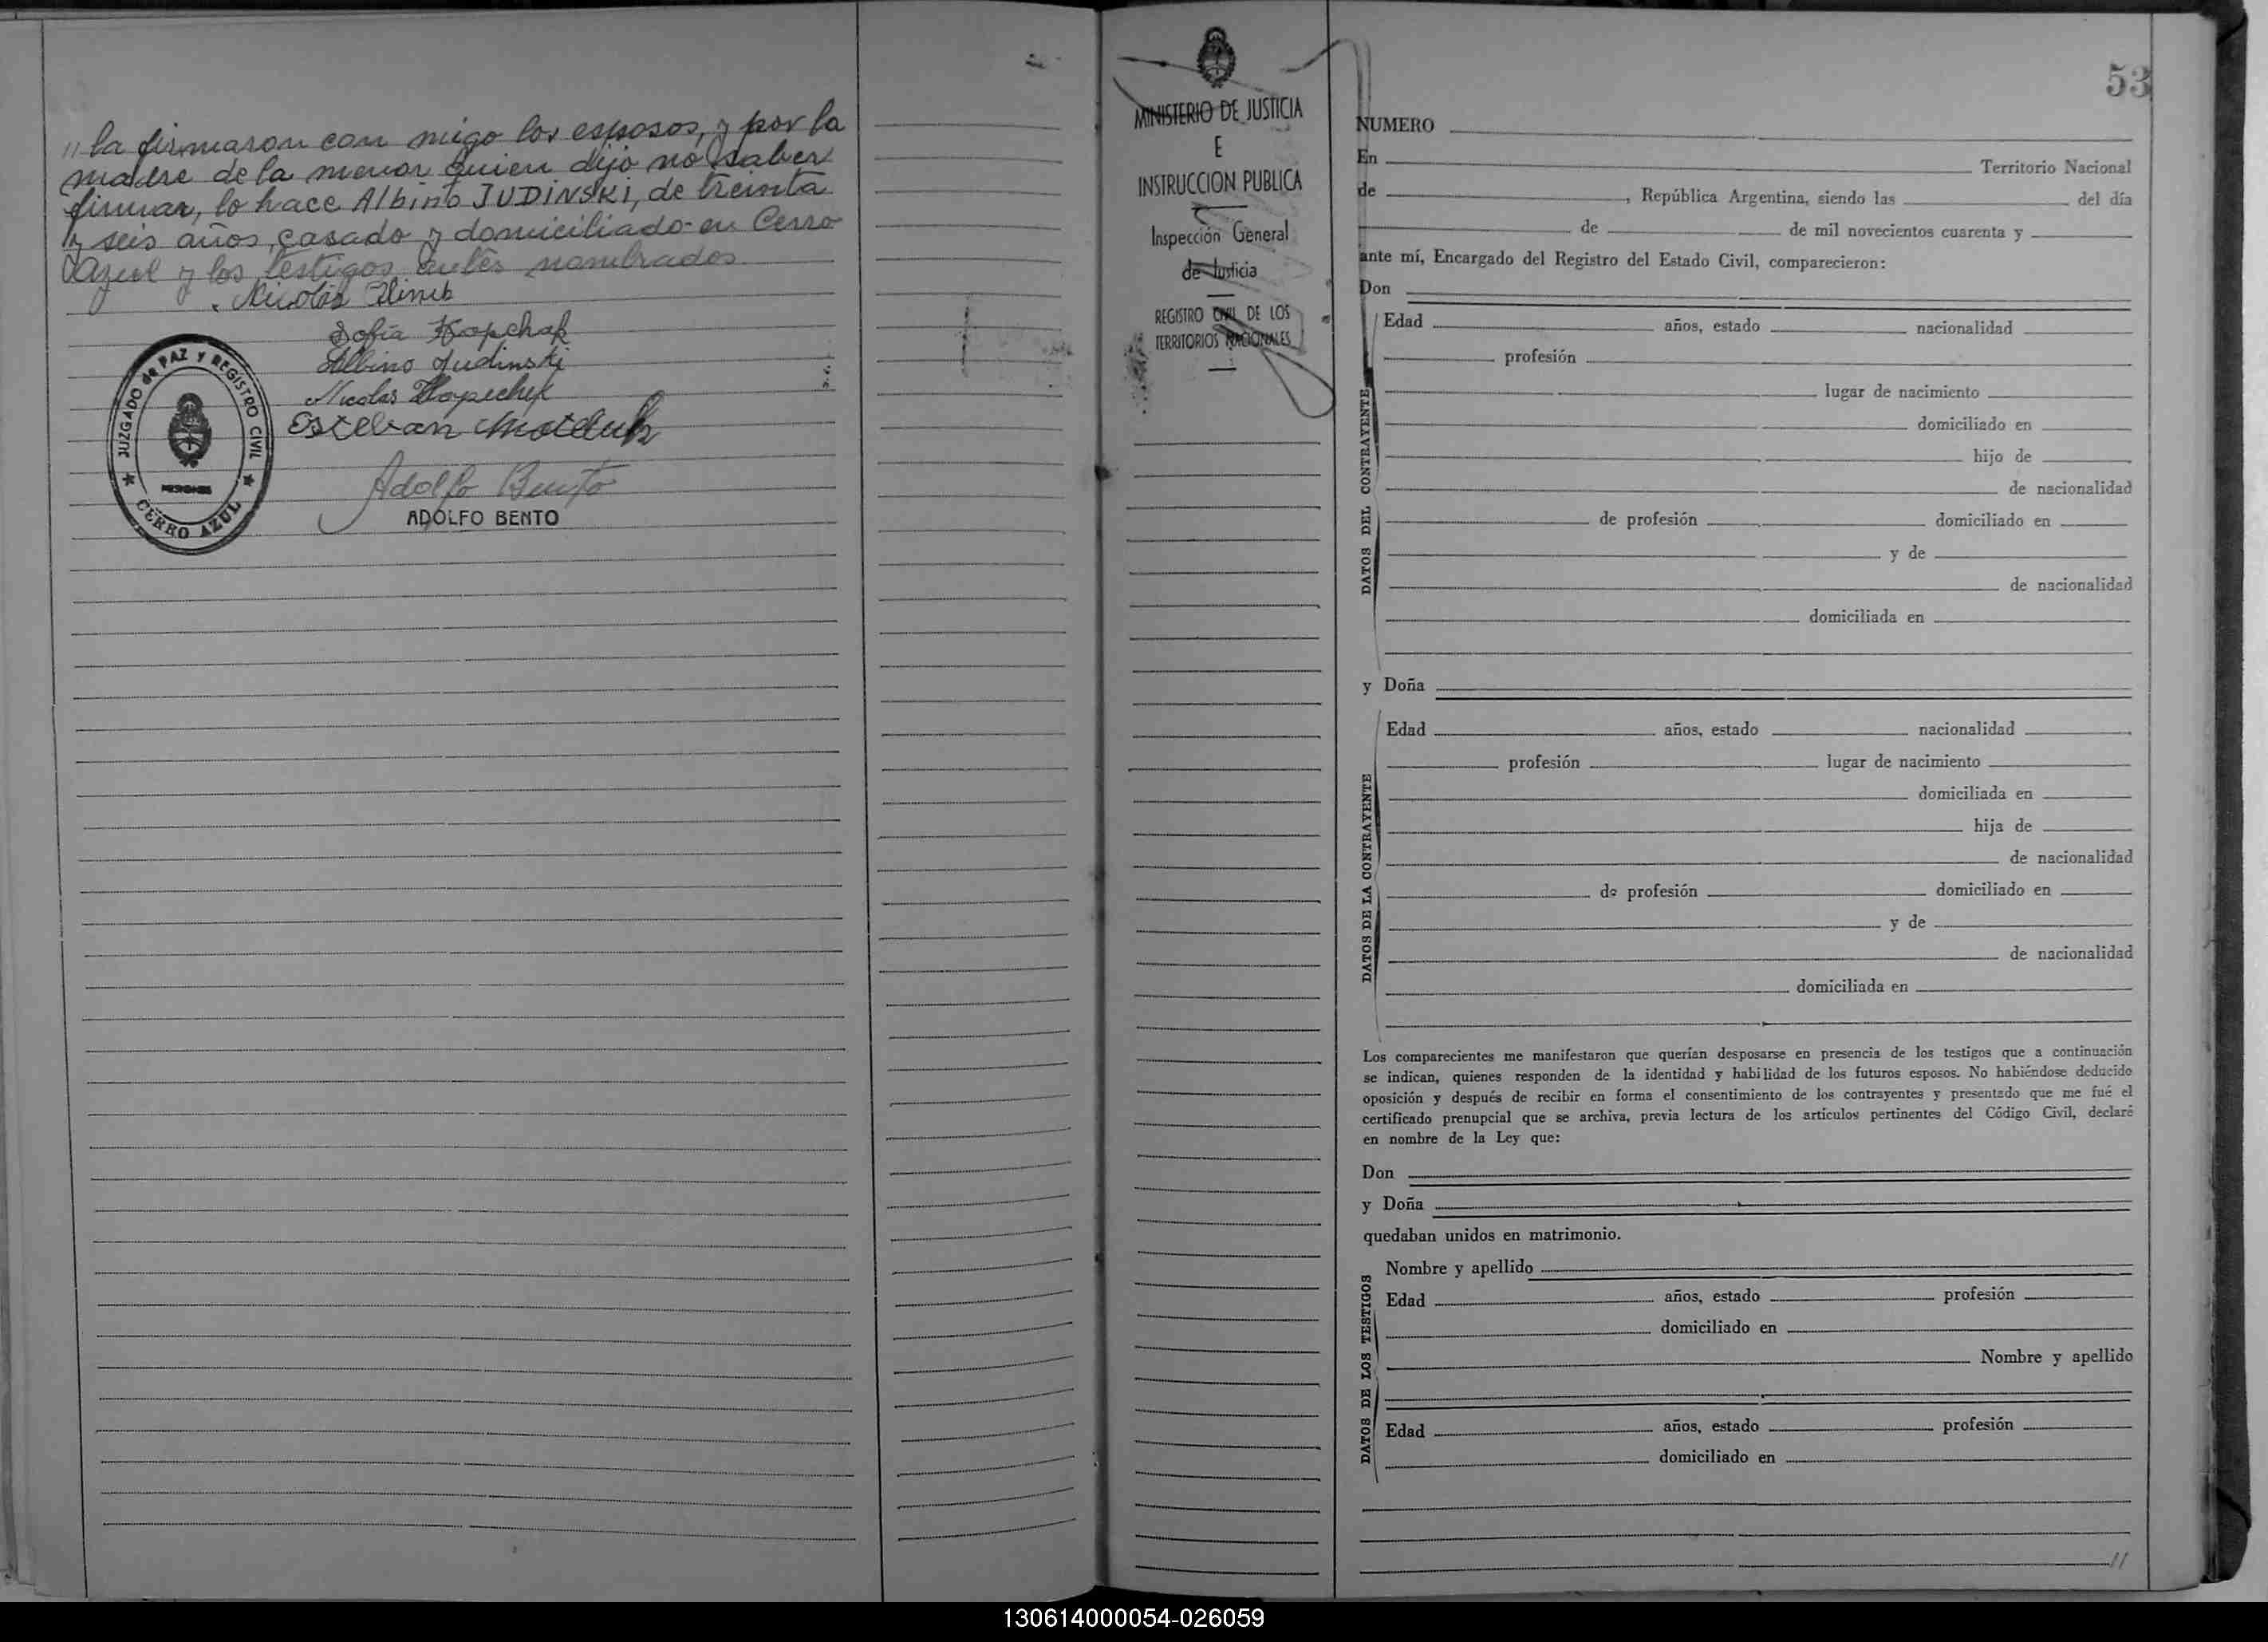 " la firmaron con migo los esposos, y por la
madre de la menor quien dijo no saber
firmar, lo hace Albino JUDINSKI, de treinta
y seis años, casado y domiciliado en Cerro
Azul y los testigos antes nombrados
Nicolás
Sofía Kopchak
Albino Judinski
Nicolas
Esteban
Adolfo Bento
ADOLFO BENTO
JUZGADO de PAZ y REGISTRO CIVIL
MISIONES
CERRO AZUL
MINISTERIO DE JUSTICIA
E
INSTRUCCION PUBLICA
Inspección General
de Justicia
REGISTRO CIVIL DE LOS
TERRITORIOS NACIONALES
53
NUMERO
En Territorio Nacional
de , República Argentina, siendo las del día
de de mil novecientos cuarenta y
ante mí, Encargado del Registro del Estado Civil, comparecieron:
Don
DATOS DEL CONTRAYENTE
Edad años, estado nacionalidad
profesión
lugar de nacimiento
domiciliado en
hijo de
de nacionalidad
de profesión domiciliado en
y de
de nacionalidad
domiciliada en
y Doña
DATOS DE LA CONTRAYENTE
Edad años, estado nacionalidad
profesión lugar de nacimiento
domiciliada en
hija de
de nacionalidad
de profesión domiciliado en
y de
de nacionalidad
domiciliada en
Los comparecientes me manifestaron que querían desposarse en presencia de los testigos que a continuación
se indican, quienes responden de la identidad y habilidad de los futuros esposos. No habiéndose deducido
oposición y después de recibir en forma el consentimiento de los contrayentes y presentado que me fué el
certificado prenupcial que se archiva, previa lectura de los artículos pertinentes del Código Civil, declaré
en nombre de la Ley que:
Don
y Doña
quedaban unidos en matrimonio.
DATOS DE LOS TESTIGOS
Nombre y apellido
Edad años, estado profesión
domiciliado en
Nombre y apellido
Edad años, estado profesión
domiciliado en
//
130614000054-026059